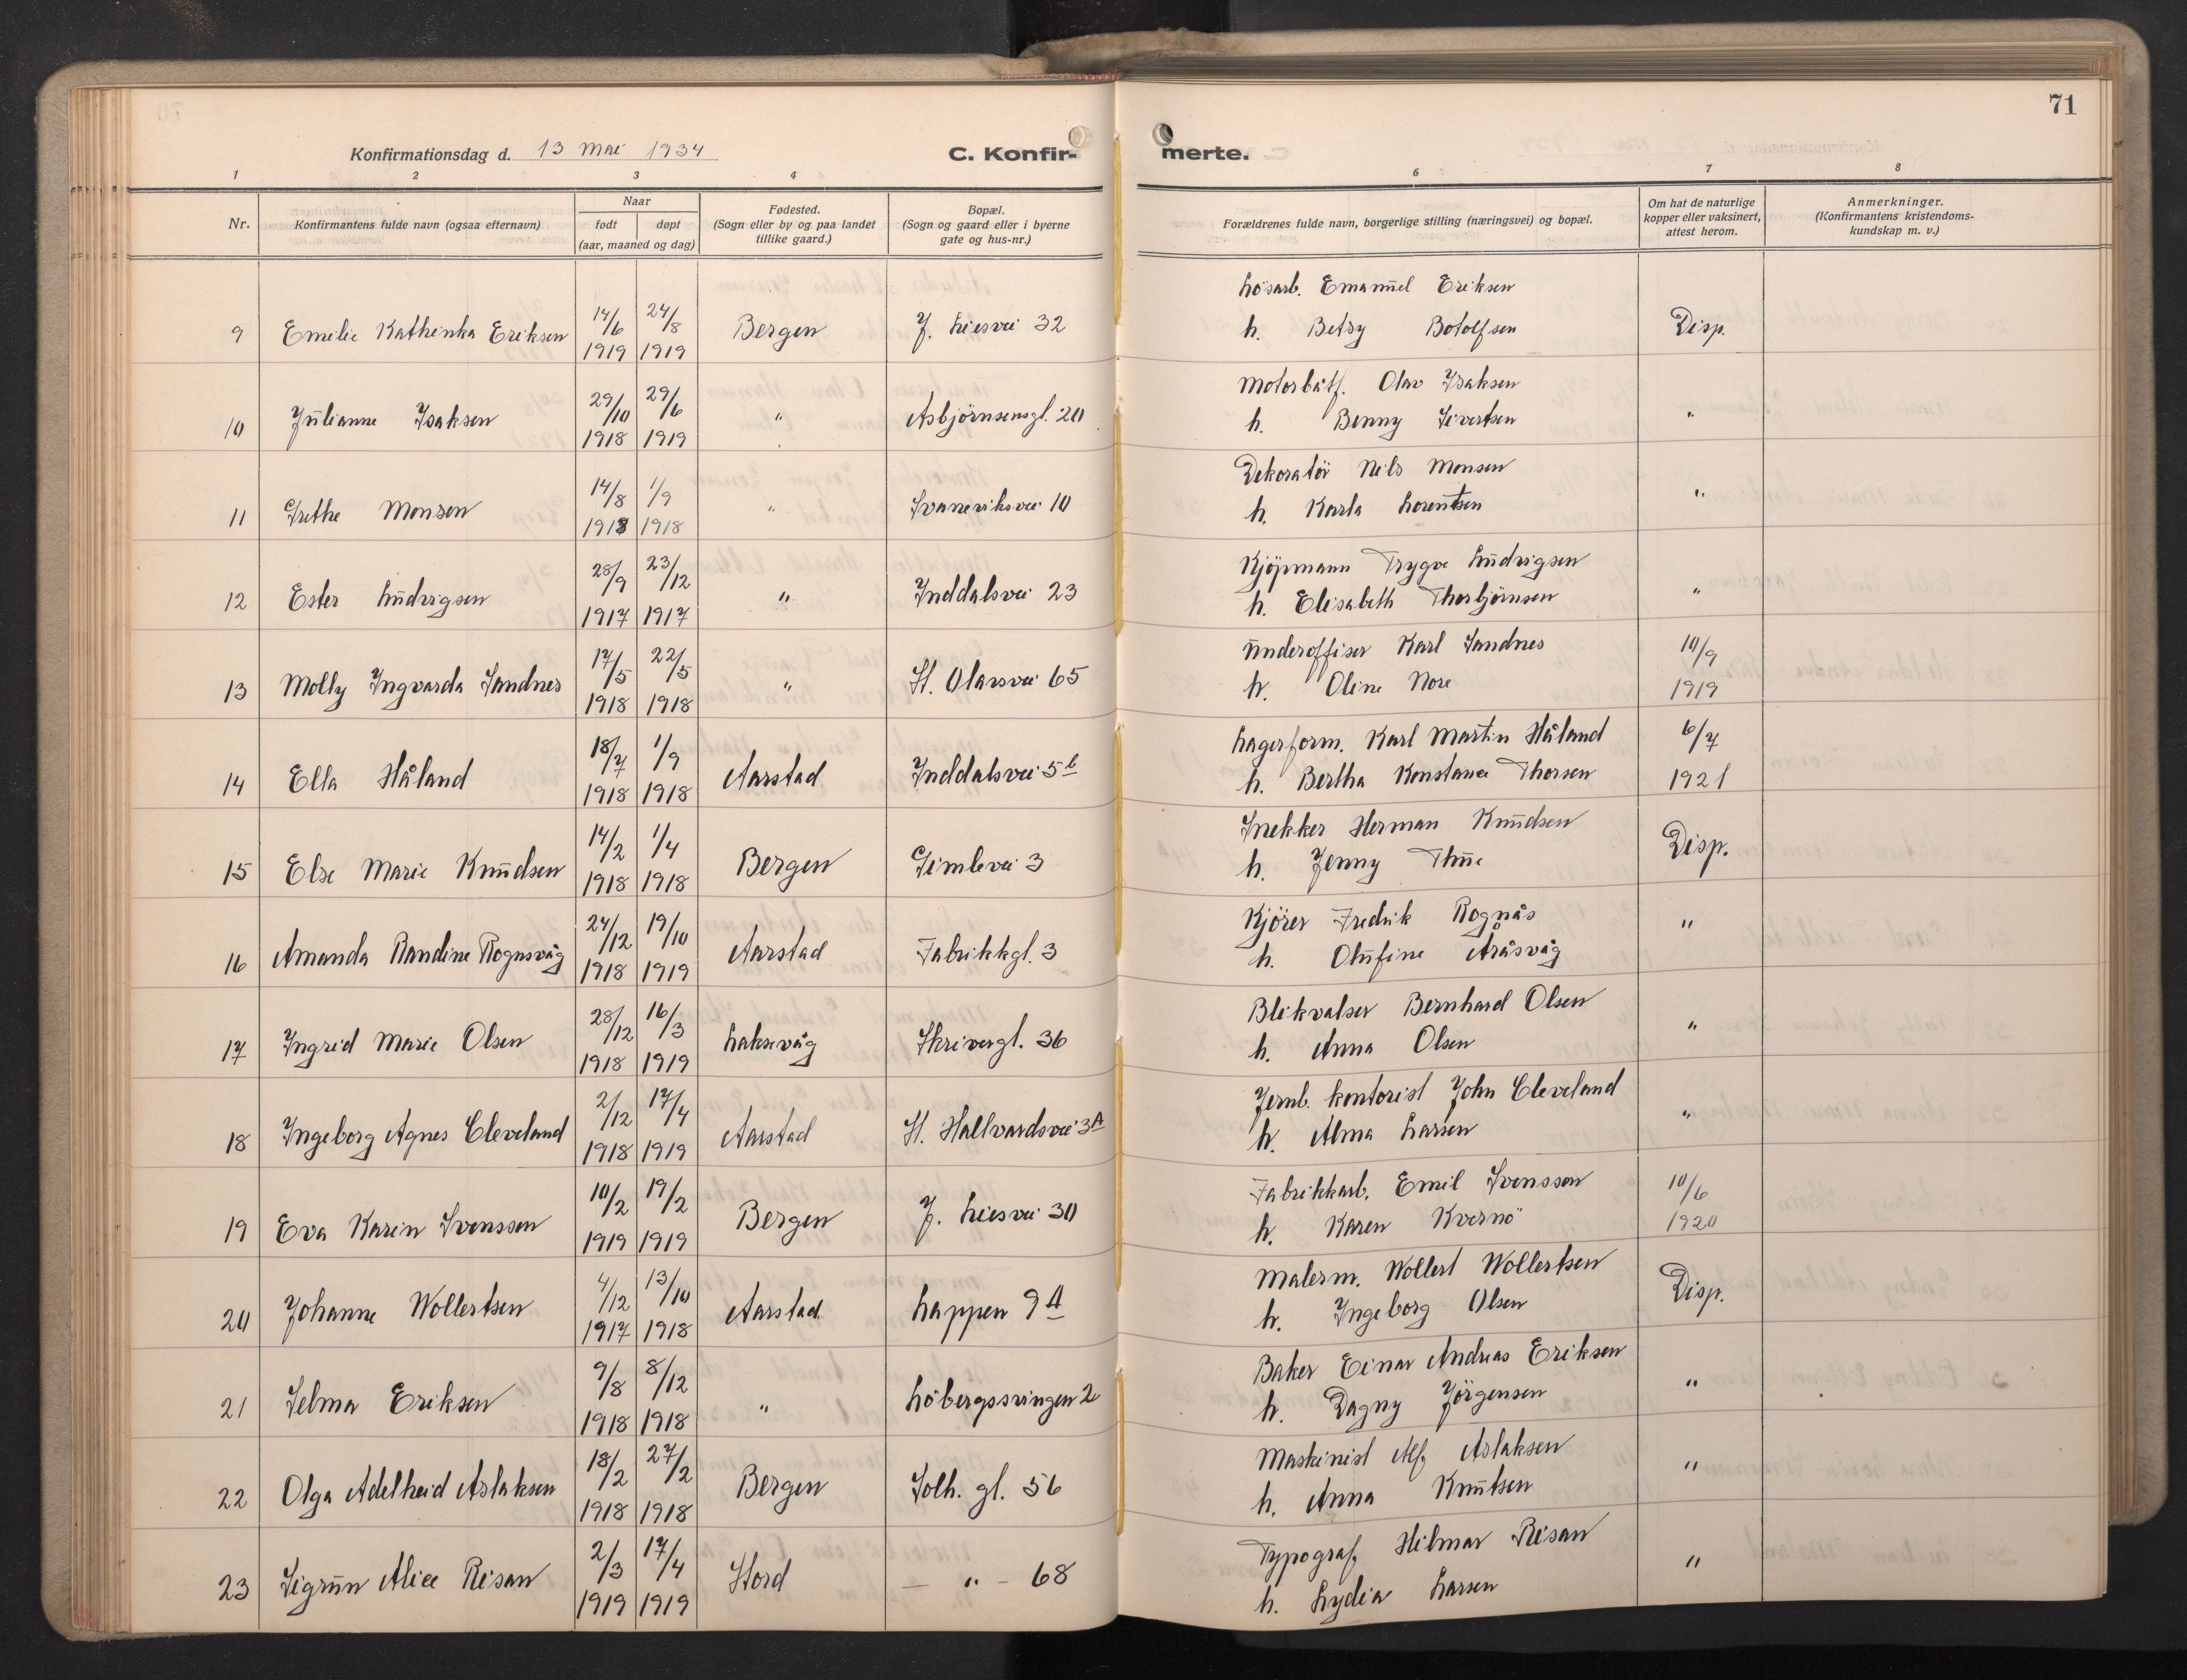 71
Konfirmationsdag d. 13 Mai 1934
C. Konfir-
merte.
1 2 3 4 6 7 8
Nr.
Konfirmantens fulde navn (ogsaa efternavn)
Naar
født døpt
(aar, maaned og dag)
Fødested.
(Sogn eller by og paa landet
tillike gaard.)
Bopæl.
(Sogn og gaard eller i byerne
gate og hus-nr.)
Forældrenes fulde navn, borgerlige stilling (næringsvei) og bopæl.
Om hat de naturlige
kopper eller vaksinert,
attest herom.
Anmerkninger.
(Konfirmantens kristendoms-
kundskap m. v.)
Løsarb. Emanuel Eriksen
9 Emilie Kathinka Eriksen 14/6 24/8 Bergen J. Liesvei 32 h. Betsy Botolfsen Disp.
1919 1919
Motorbåtf. Olav Isaksen
10 Julianne Isaksen 29/10 29/6 " Asbjørnsensgt. 20 h. Benny Sivertsen "
1918 1919
Dekoratör Nils Monsen
11 Grethe Monsen 14/8 1/9 " Svaneviksvei 10 h. Karla Lorentsen "
1918 1918
Kjöpmann Trygve Ludvigsen
12 Ester Ludvigsen 28/9 23/12 " Inddalsvei 23 h. Elisabeth Thorbjörnsen "
1917 1917
Underoffiser Karl Sandnes 10/9
13 Molly Ingvarda Sandnes 17/5 22/5 " St. Olavsvei 65 h. Oline Nore 1919
1918 1918
Lagerform. Karl Martin Håland 6/7
14 Ella Håland 18/7 1/9 Aarstad Inddalsvei 5b h. Bertha Konstance Thorsen 1921
1918 1918
Snekker Herman Knudsen
15 Else Marie Knudsen 14/2 1/4 Bergen Gimlevei 3 h. Jenny Thue Disp.
1918 1918
Kjörer Fredrik Rognås
16 Amanda Randine Rognsvåg 24/12 19/10 Aarstad Fabrikkgt. 3 h. Olufine Aråsvåg "
1918 1919
Blikvalser Bernhard Olsen
17 Ingrid Marie Olsen 28/12 16/3 Laksevåg Skrivergt. 36 h. Anna Olsen "
1918 1919
Jernb. kontorist John Cleveland
18 Ingeborg Agnes Cleveland 2/12 17/4 Aarstad St. Hallvardsvei 3A h. Alma Larsen "
1918 1919
Fabrikkarb. Emil Svensson 10/6
19 Eva Karin Svenssen 10/2 19/2 Bergen J. Liesvei 30 h. Karen Kvernö 1920
1919 1919
Malerm. Wollert Wollertsen
20 Johanne Wollertsen 4/12 13/10 Aarstad Lappen 9A h. Ingeborg Olsen Disp.
1917 1918
Baker Einar Andreas Eriksen
21 Selma Eriksen 9/8 8/12 " Löbergssvingen 2 h. Dagny Jörgensen "
1918 1918
Maskinist Alf Aslaksen
22 Olga Adelheid Aslaksen 18/2 27/2 Bergen Solh. gt. 56 h. Anna Knutsen "
1918 1918
Typograf Hilmar Risan
23 Sigrun Alice Risan 2/3 17/4 Stord — " — 68 h. Lydia Larsen "
1919 1919